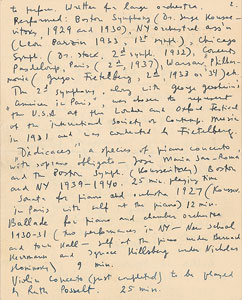 2.
to perform. Written for large orchestra.
Performed: Boston Symphony (Dr. Serge Kousse-
vitzky, 1929 and 1930), NY orchestral ass'n
(Leon Barzin 1933 (1st), Chicago
Symph. (Dr. Stock, 2d 1932), Concerts
Pasdeloup, Paris (2d, 1937), Warsaw Philhar-
monic (Gregor Fitelberg, 2d, 1933 or 34).
The 2d symphony, along with george gershwin's
"american in Paris" was chosen to represent
the U.S.A at the London and Oxford Festival
of the International Society for Contemp. Music
in 1931 and was conducted by Fitelberg.
"Dedicaces" a species of piano concerto
with soprano obligato -
and the Boston Symph. (Koussevitzky) Boston
and NY 1939-1940. 25 min. playing time
Sonata for piano and orchestra 1927 (
in Paris with self at the piano) 12 min.
Ballade for piano and chamber orchestra
1930-31 (two performances in NY - New School
and town Hall - self at the piano under Bernard
Herrmann and Ignace Hillsberg under Nicholas
9 min.
Violin Concerto (just completed) to be played
by Ruth Posselt. 25 min.